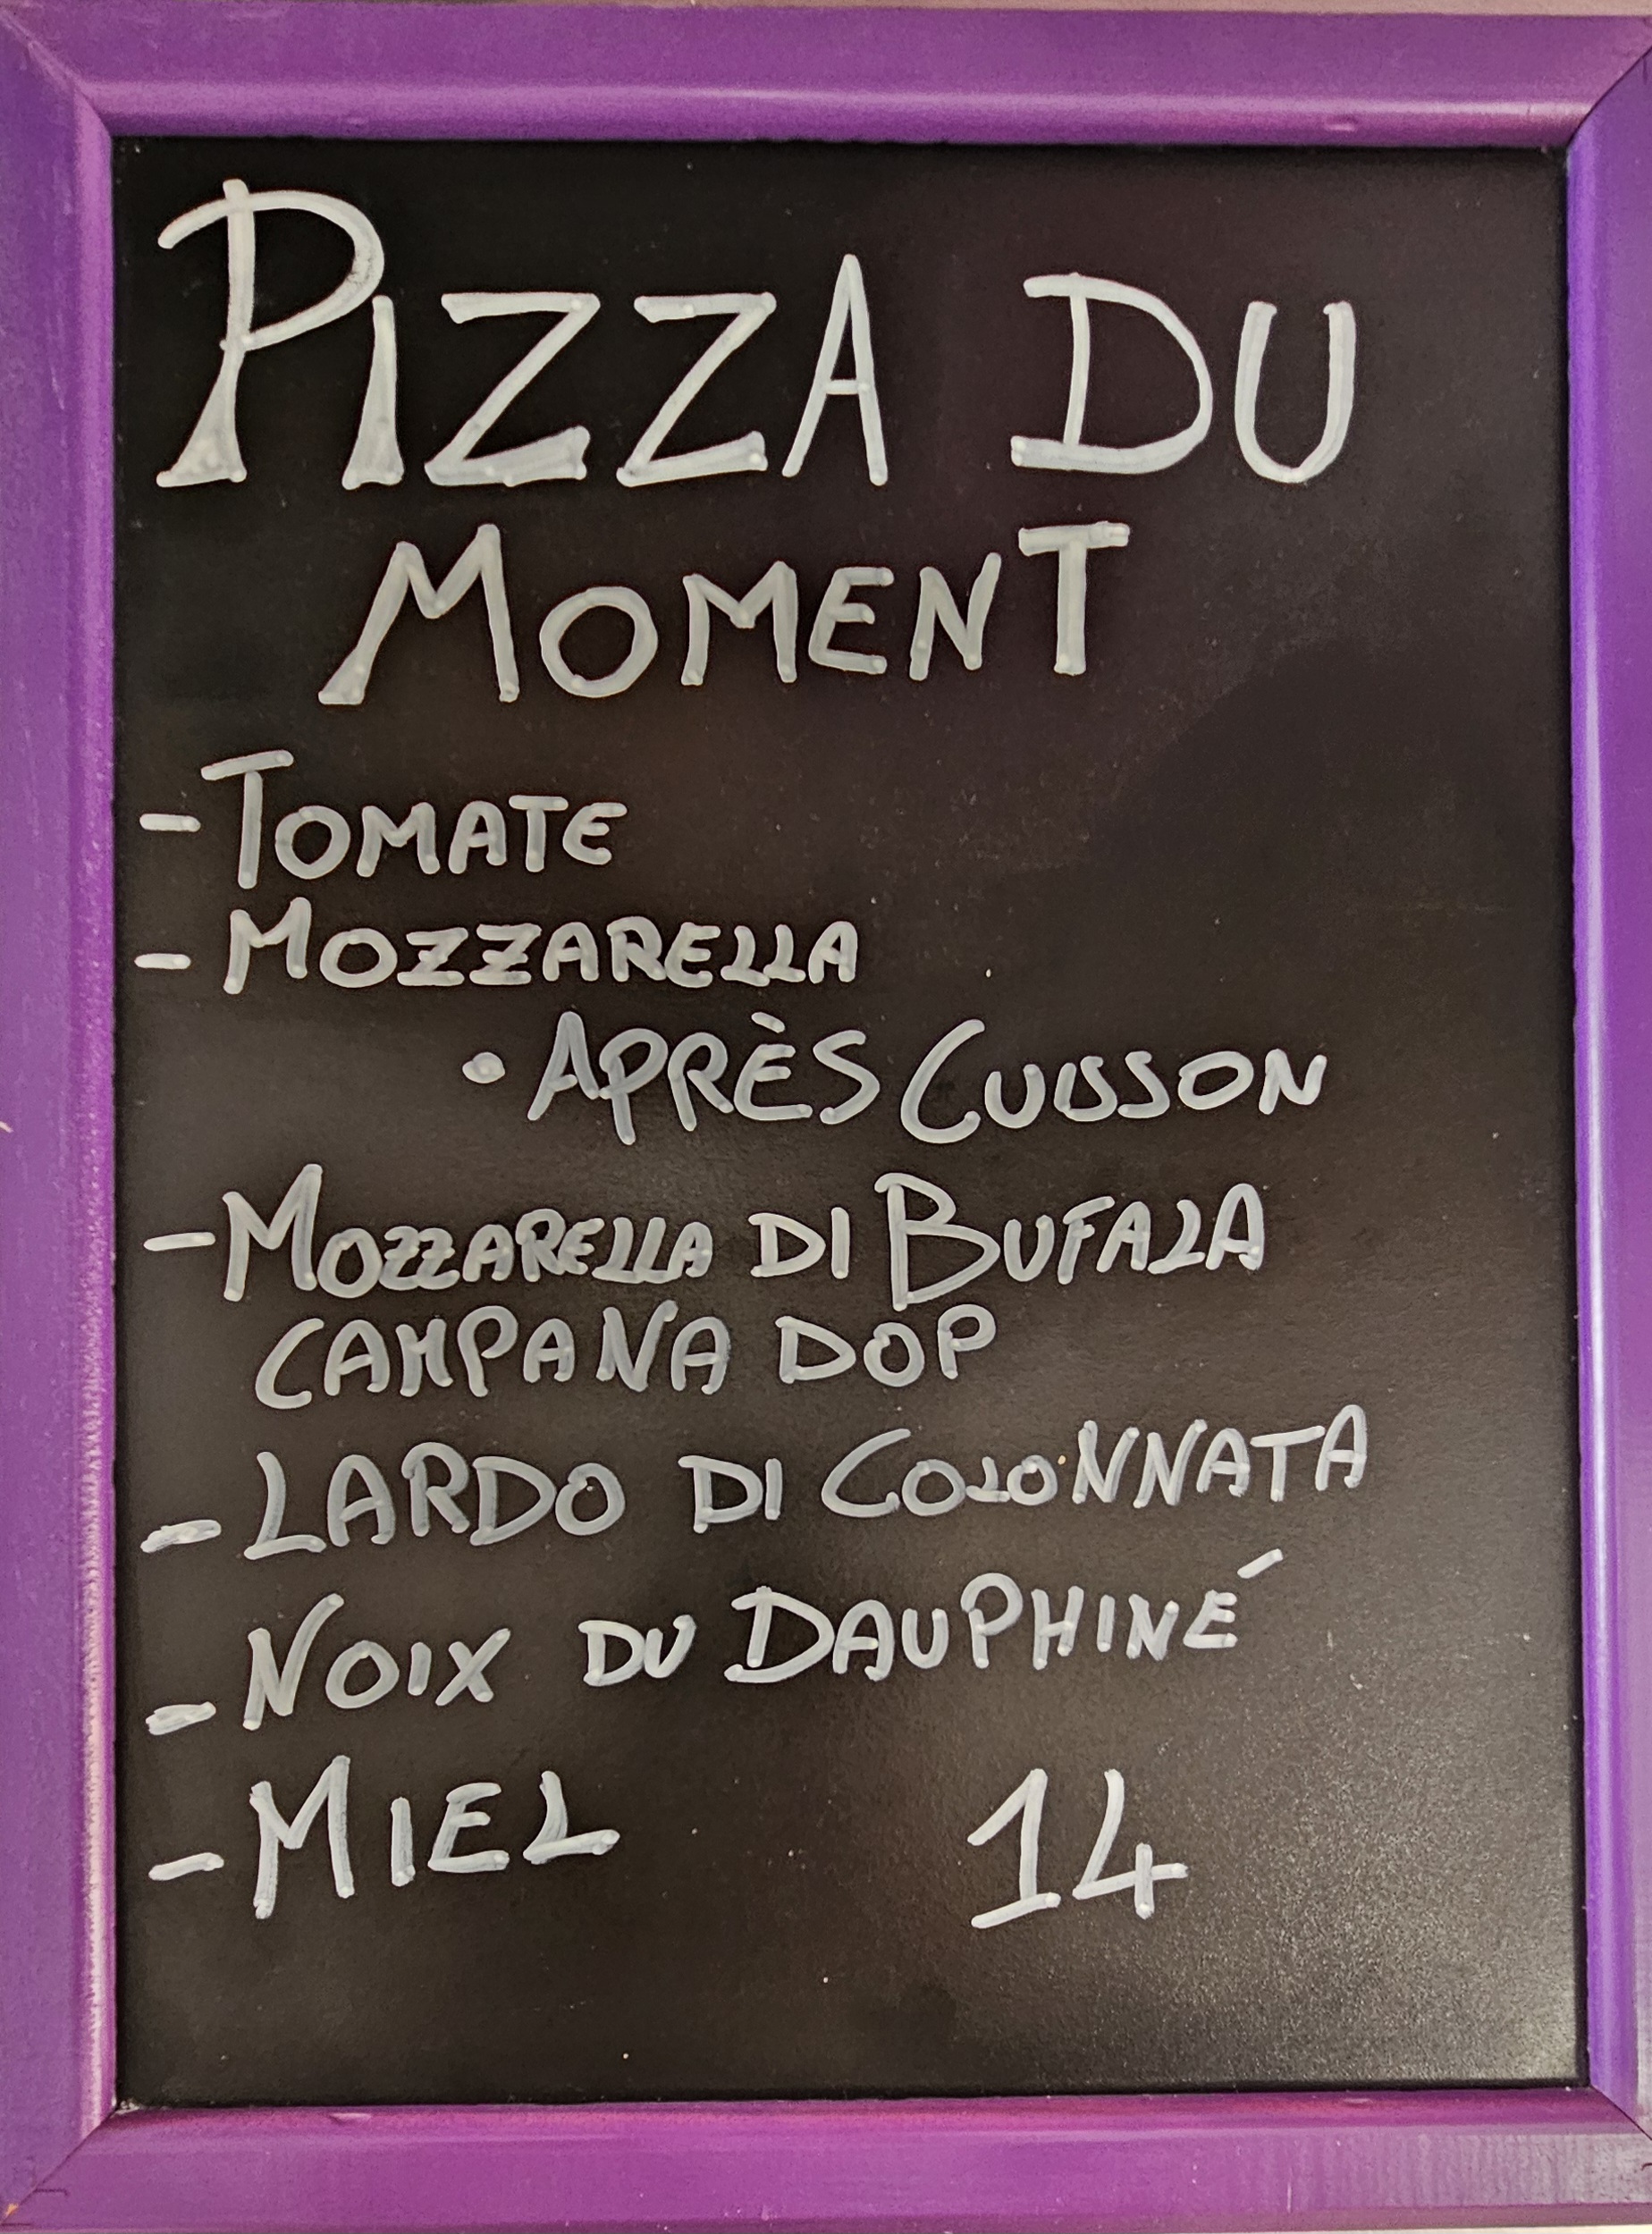 PIZZA DU
MOMENT
- TOMATE
- MOZZARELLA
• APRÈS CUISSON
- MOZZARELLA DI BUFALA
CAMPANA DOP
- LARDO DI COLONNATA
- NOIX DU DAUPHINÉ
- MIEL 14